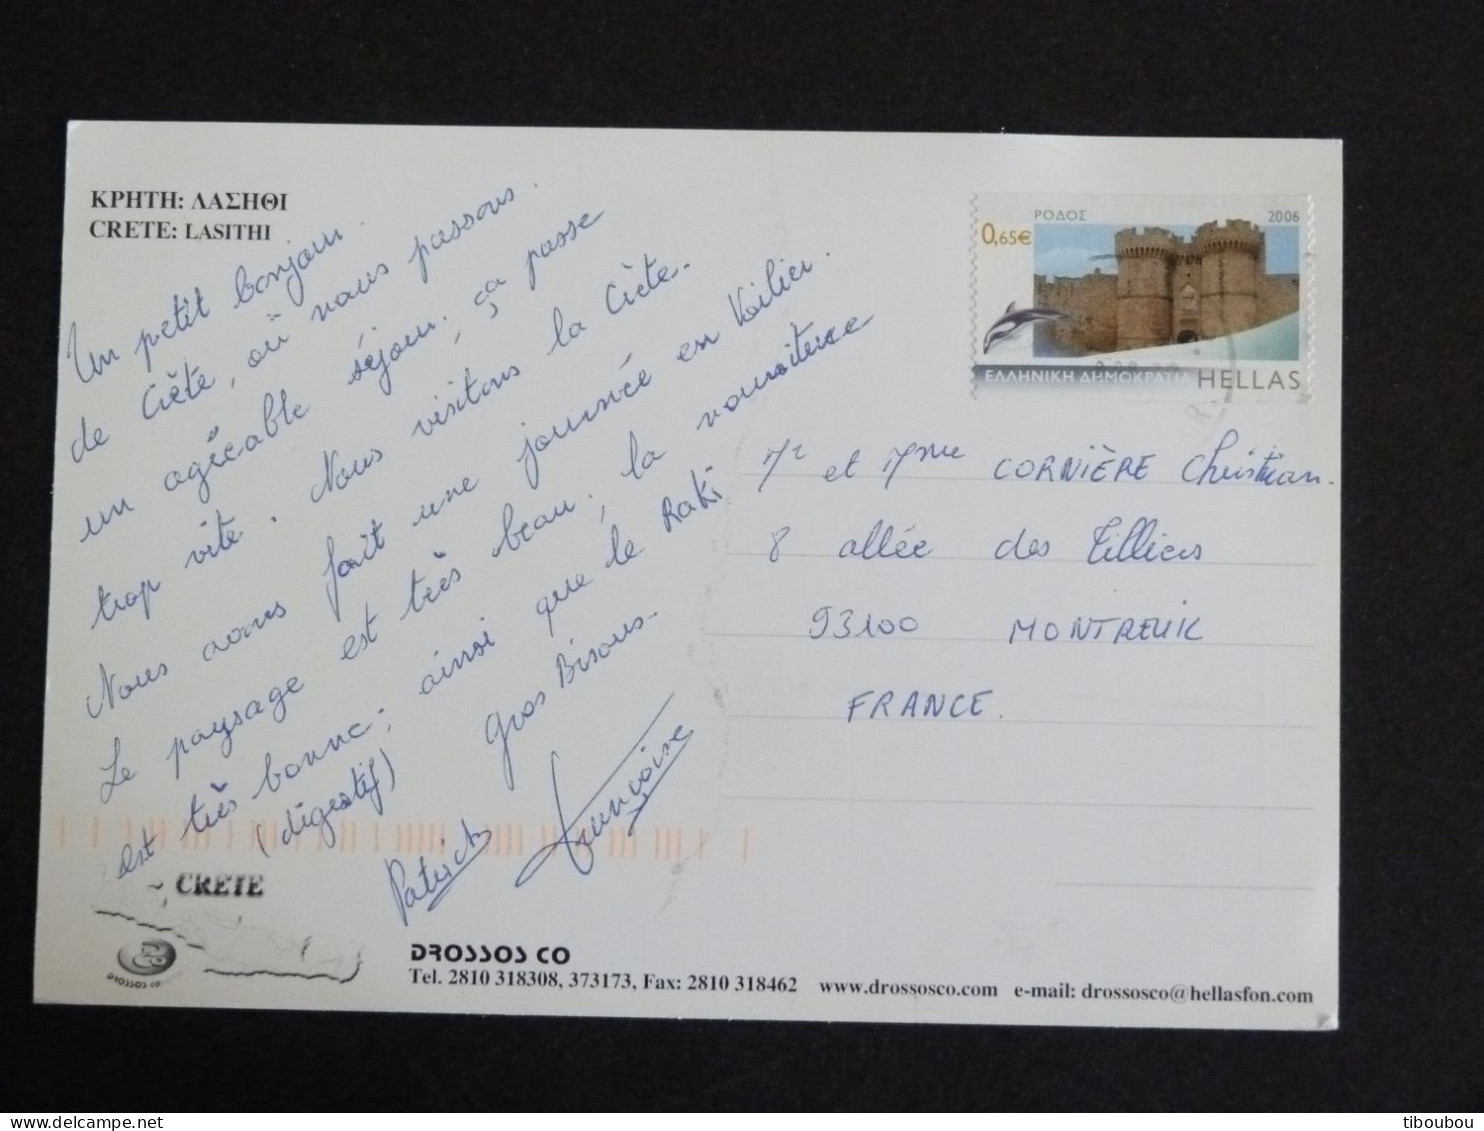 ΚΡΗΤΗ: ΛΑΣΗΘΙ
CRETE: LASITHI
Un petit bonjour
de Crète, où nous passons
un agréable séjour, ça passe
trop vite. Nous visitons la Crète.
Nous avons fait une journée en Voilier.
Le paysage est très beau, la nourriture
est très bonne, ainsi que le Raki
(digestif) Gros Bisous.
Patrick Françoise
ΡΟΔΟΣ 2006
0,65€
ΕΛΛΗΝΙΚΗ ΔΗΜΟΚΡΑΤΙΑ HELLAS
Mr et Mme CORNIÈRE Christian.
8 allée des Tilliers
93100 MONTREUIL
FRANCE.
CRETE
DROSSOS CO
DROSSOS CO
Tel. 2810 318308, 373173, Fax: 2810 318462 www.drossosco.com e-mail: drossosco@hellasfon.com
tiboubou